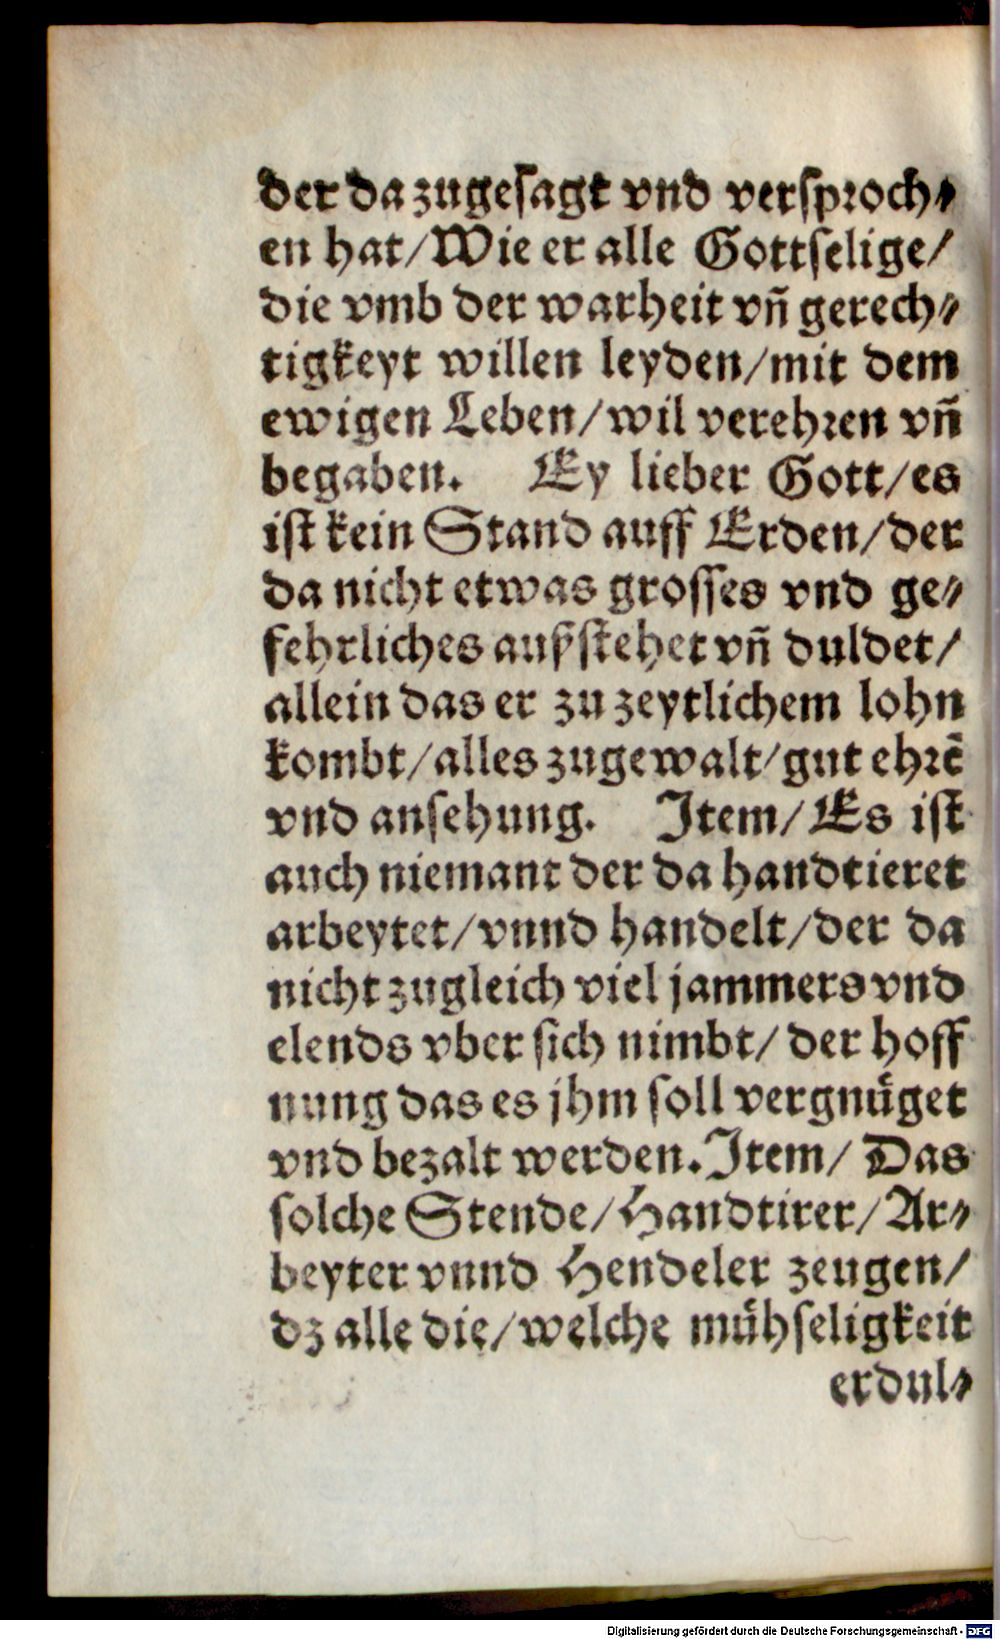 der da zugesagt vnd versproch⸗
en hat/Wie er alle Gottselige/
die vmb der warheit vñ gerech⸗
tigkeyt willen leyden/mit dem
ewigen Leben/wil verehren vñ
begaben. Ey lieber Gott/es
ist kein Stand auff Erden/der
da nicht etwas grosses vnd ge⸗
fehrliches außstehet vñ duldet/
allein das er zu zeytlichem lohn
kombt/alles zugewalt/gut ehrē
vnd ansehung. Item/Es ist
auch niemant der da handtieret
arbeytet/vnnd handelt/der da
nicht zugleich viel jammers vnd
elends vber sich nimbt/der hoff
nung das es jhm soll vergnuͤget
vnd bezalt werden. Item/Das
solche Stende/Handtirer/Ar⸗
beyter vnnd Hendeler zeugen/
dz alle die/welche muͤhseligkeit
erdul⸗
Digitalisierung gefördert durch die Deutsche Forschungsgemeinschaft - DFG